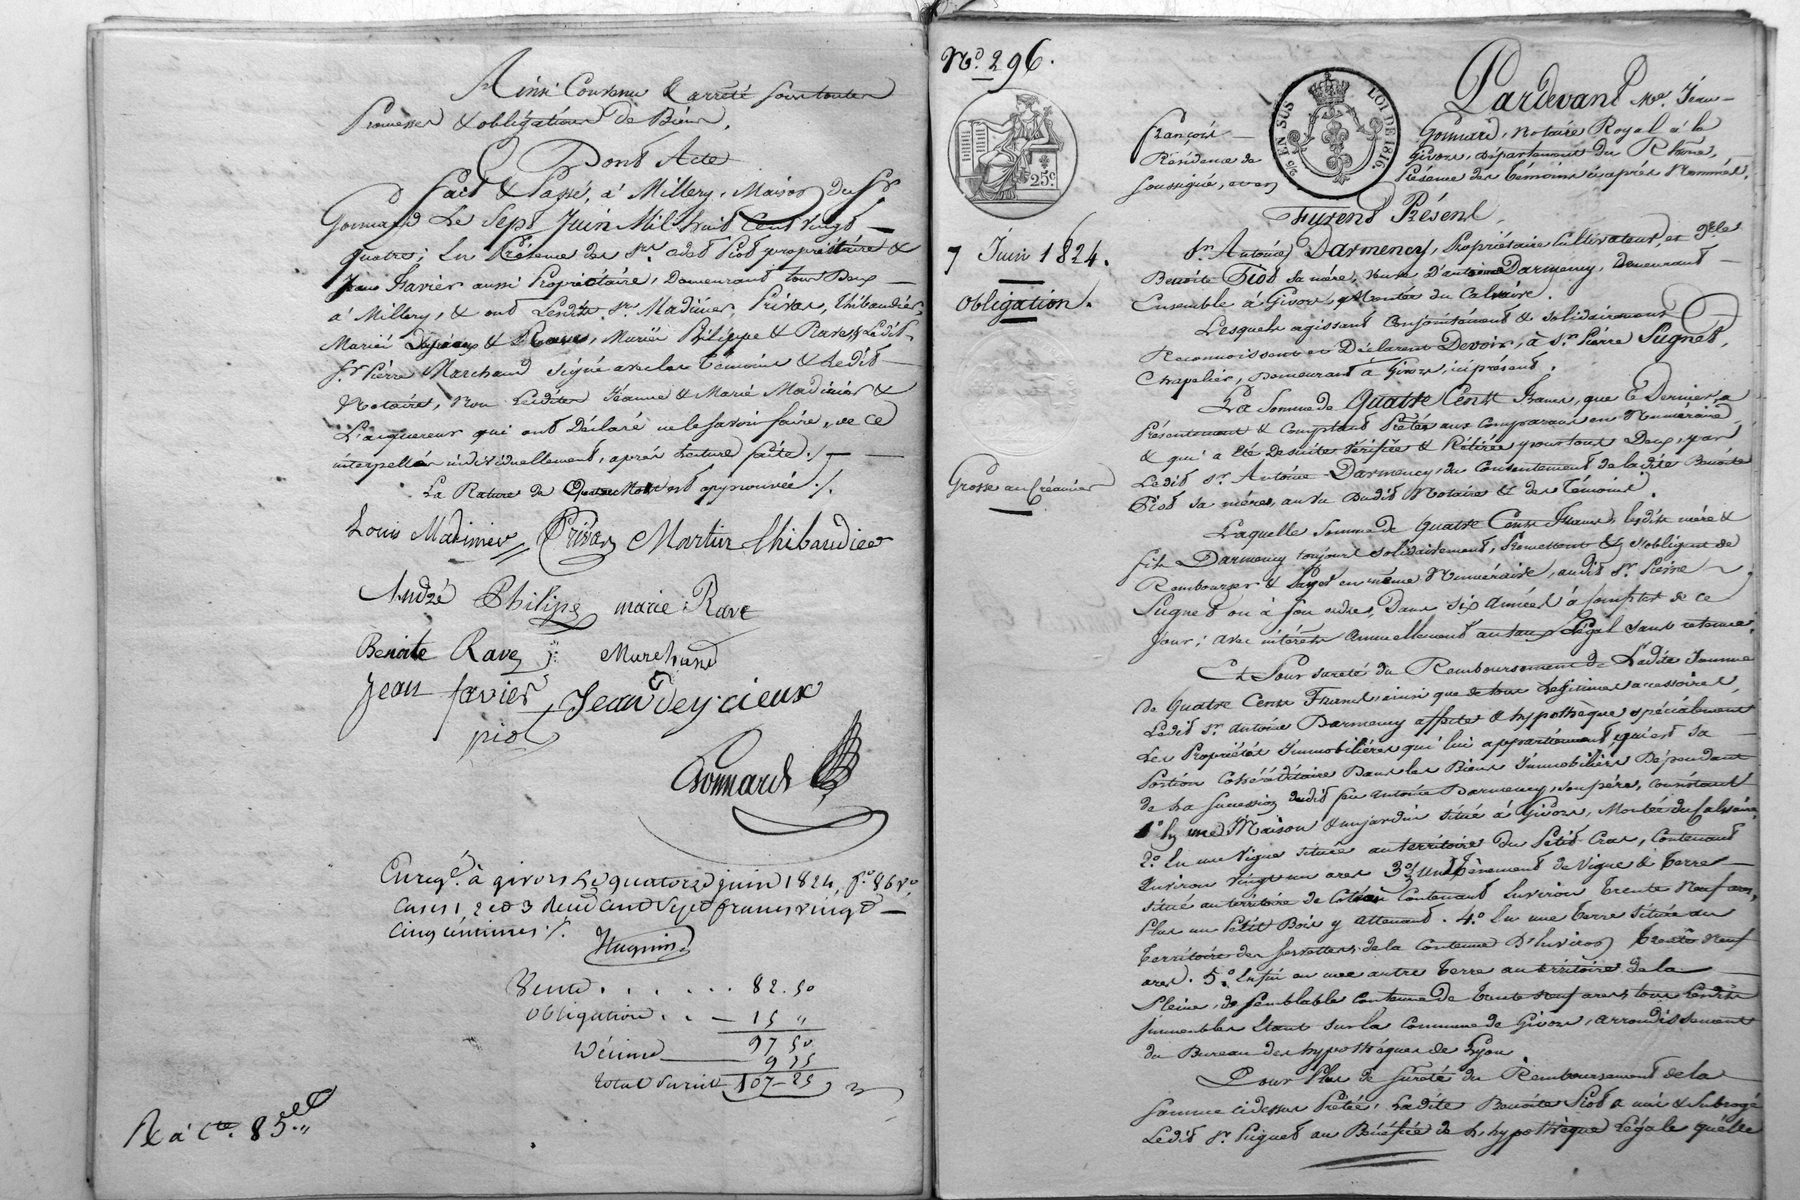 Ainsi Convenu & arrêté sous toutes
Promesses & obligations de Biens.
Dont Acte
fait & Passé, à Millery, Maison du Sr
Gonnard Le Sept Juin Mil huit Cent vingt
quatre; En Présence des Srs. Piot propriétaire &
Jean Favier aussi Propriétaire, Demeurant tous Deux
à Millery, & ont Lesdits Srs Madinier, Privas, Thibaudier,
Mariés & Rave, Mariés Philippe & Rave, & Ledit
Sr. Pierre Marchand signé avec les Témoins & Ledit
Notaire, Non Lesdites Jeanne & Marie Madinier &
L'acquereur qui ont Déclaré ne le savoir faire, de ce
interpellés individuellement, après Lecture faite ./.
La Rature de Mots est approuvée ./.
Louis Madinier Privas Martin thibaudier
André Philipe marie Rave
Benoite Rave Marchand
Jean favier Jean deycieux
piot
Gonnard
Enregé. à givors Le quatorze juin 1824, fo. 86 vo.
Cases 1, 2 et 3 Reçu Cent Sept francs vingt
Cinq centimes ./.
Hugnin
Vente . . . . . . 82.50
Obligation . . 15 "
97 50
Décime 9 75
Total Suivant 107-25
N°. 296.
25c
2/5 EN SUS LOI DE 1816
Pardevant Me. Jean-
François Gonnard, Notaire Royal à la
Résidence de Givors, Département du Rhône,
soussigné, avec Présence des témoins ci après Nommés,
Furent Présent
7 Juin 1824.
Sr. Antoine Darmency, Propriétaire Cultivateur, et
Benoite Piot sa mère, Veuve d'antoine Darmency, Demeurant
Ensemble à Givors, Montée du Calvaire.
Obligation.
Lesquels agissant Conjointement & solidairement
Reconnoissent et Déclarent Devoir, à Sr. Pierre Pugnet,
Chapelier, Demeurant à Givors, ici présent.
La Somme de Quatre Cent francs, que ce Dernier a
Présentement & Comptant Prêtés aux Comparans en Numéraire,
& qui a été de suite vérifiée & Retirée pour tous Deux, par
Grosse au Créancier
Ledit Sr. Antoine Darmency, du Consentement de ladite Benoite
Piot sa mère, au vu Dudit Notaire & des Témoins.
Laquelle Somme de Quatre Cent francs, lesdits mère &
fils Darmency toujours solidairement, Promettent & s'obligent de
Rembourser & Payer en même Numéraire, audit Sr. Pierre
Pugnet ou à son ordre, Dans six Années à Compter de ce
Jour; avec intérêts Annuellement au taux Légal sans retenue.
Et Pour sureté du Remboursement de Ladite Somme
de Quatre Cent Francs, ainsi que de tous Légitimes accessoires,
Ledit Sr. Antoine Darmency affecte & hypothèque spécialement
Les Propriétés Immobilières qui lui appartiennent, qui est sa
Portion Cohéréditaire Dans les Biens Immobiliers Dépendant
de La Succession dudit feu Antoine Darmency, son père, consistant
1° En une Maison & un jardin situé à Givors, Montée du Calvaire
2°. En une Vigne située au territoire du Petit Cras, Contenant
Environ vingt un ares 3°/ Un Tènement de Vigne & Terre
situé au territoire de Contenant Environ trente Neuf ares,
Plus un Petit Bois y attenant. 4°. En une Terre située au
Territoire des de la Contenue D'Environ trente Neuf
ares. 5°. Enfin en une autre Terre au territoire de la
Pleine, de semblable Contenue de trente Neuf ares, tous Lesdits
immeubles Etant sur la Commune de Givors, arrondissement
du Bureau des hypothèques de Lyon
Pour Plus de Sûreté du Remboursement de la
somme cidessus Prêtée, Ladite Benoite Piot a mis & Subrogé
Ledit Sr. Pugnet au Bénéfice de L'hypothèque Légale qu'elle